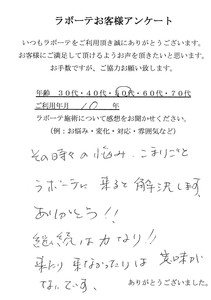 ラポーテお客様アンケート
いつもラポーテをご利用頂き誠にありがとうございます。
お客様にご満足して頂けるようお声を頂きたいと思います。
お手数ですが、ご協力お願い致します。
年齢 30代・40代・50代・60代・70代
ご利用年月 10 年
ラポーテ施術について感想をお聞かせください。
(例：お悩み・変化・対応・雰囲気など)
その時々の悩み、こまりごと
ラポーテに来ると解決します。
ありがとう!!
継続は力なり!!
来たり来なかったりは意味が
ないです。
ありがとうございました。